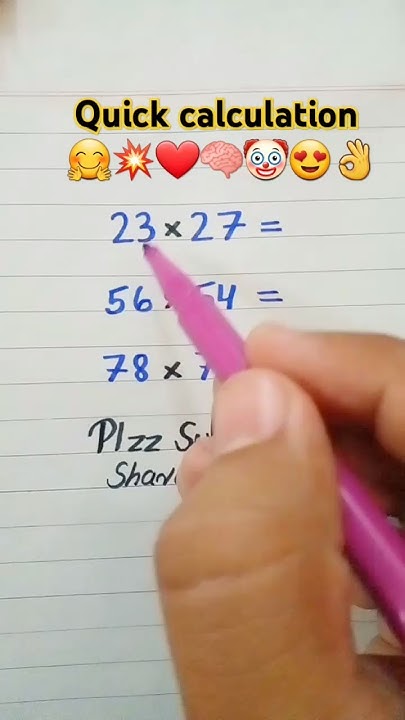 Quick calculation
🤗💥❤️🧠🤡😍👌
23 × 27 =
56 54 =
78 × 7
Plzz